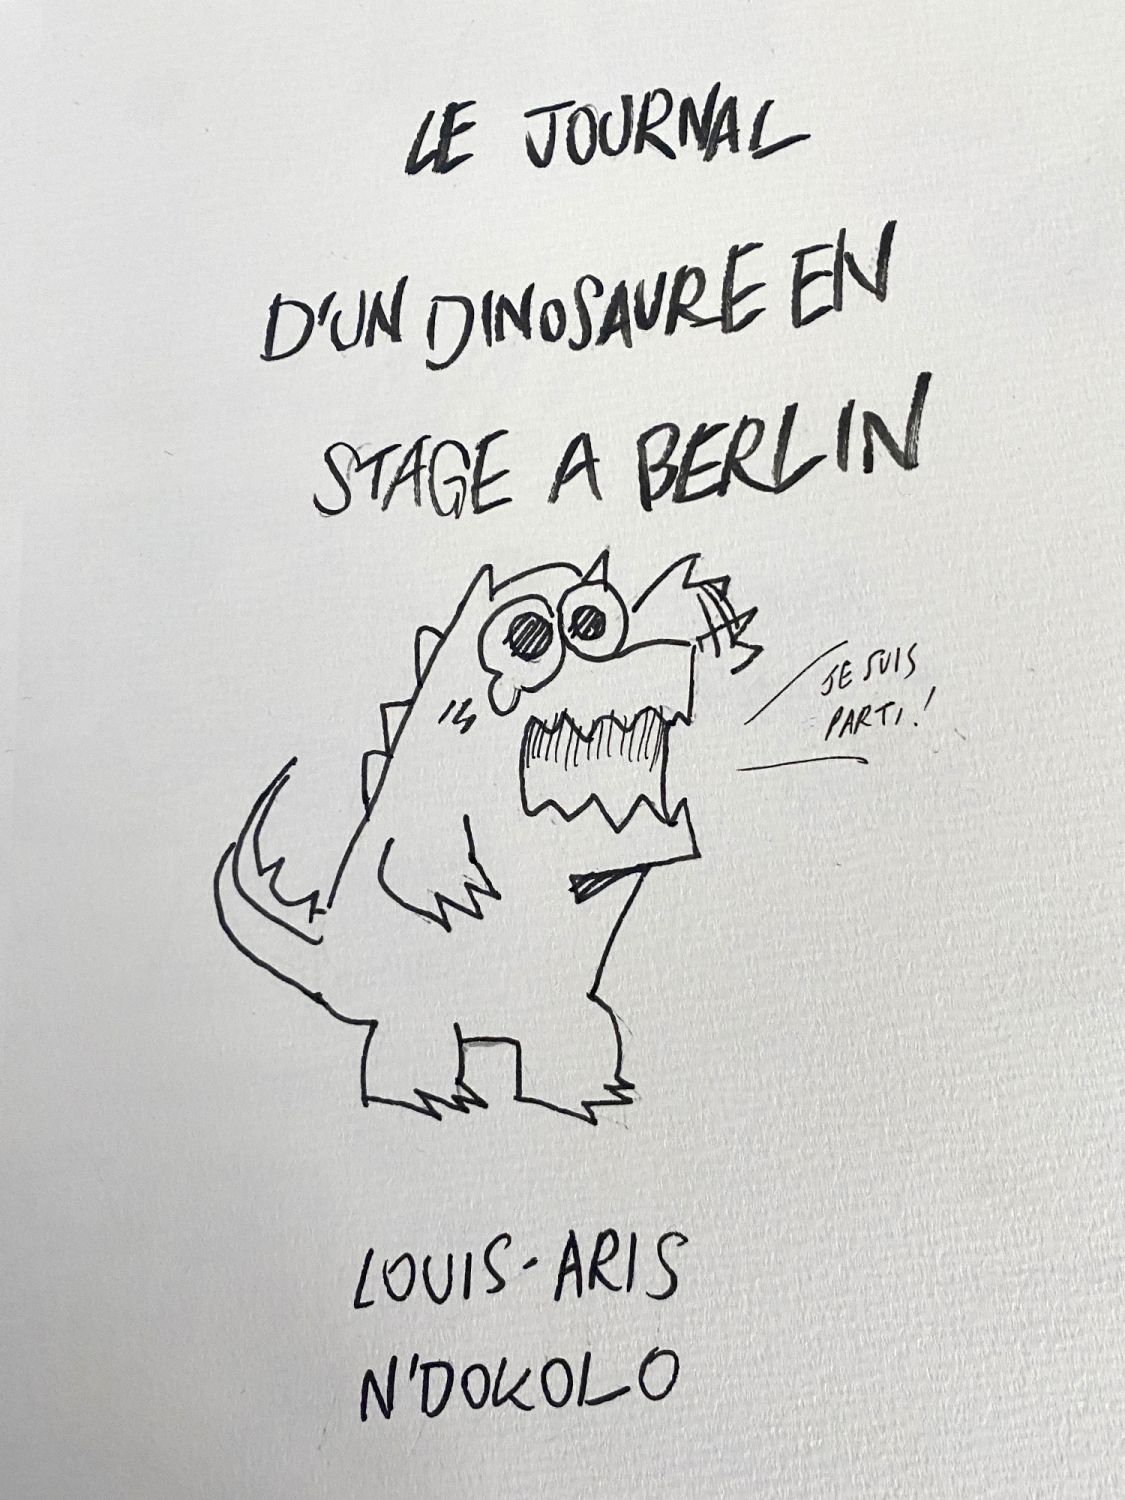 LE JOURNAL
D'UN DINOSAURE EN
STAGE A BERLIN
JE SUIS
PARTI!
LOUIS-ARIS
N'DOKOLO